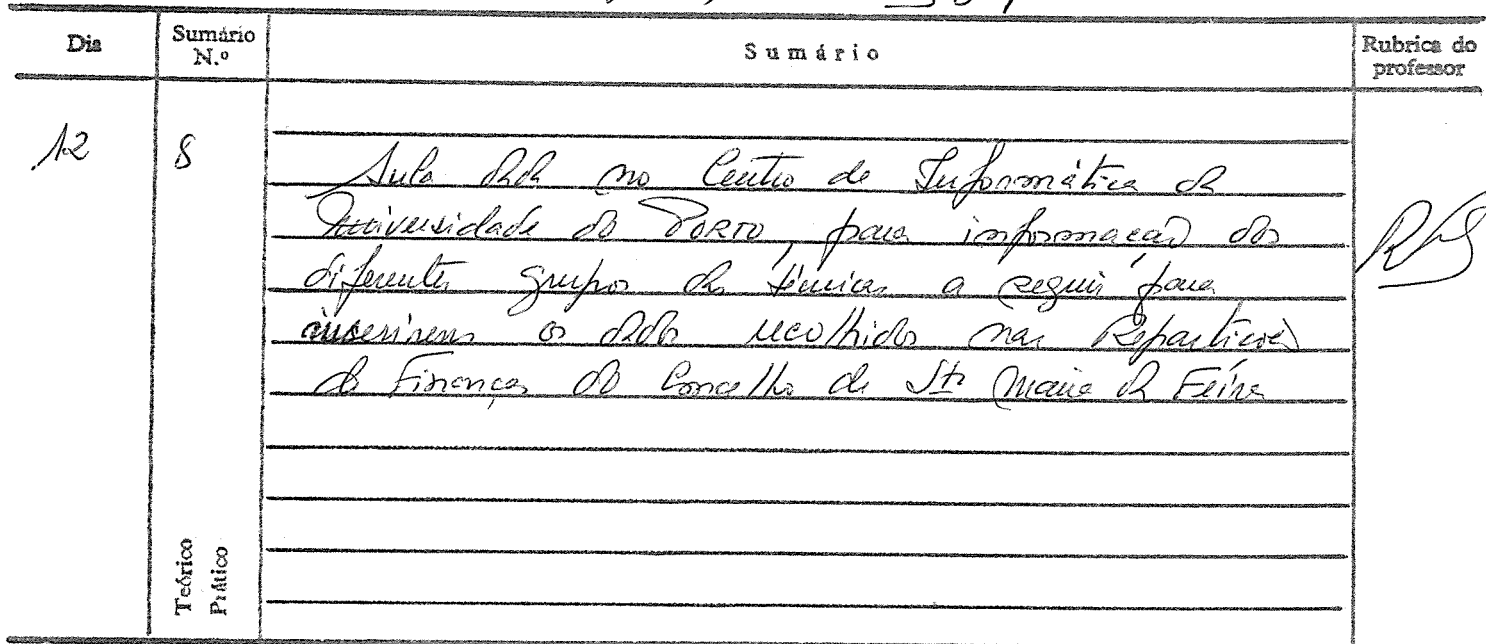 Dia
Sumário N.º
Sumário
Rubrica do professor
12
8
Aula dada no Centro de Informática da
Universidade do PORTO, para informação dos
diferentes grupos das técnicas a seguir para
inserirem os dados recolhidos nas Repartições
de Finanças do Concelho de Stª Maria da Feira
Teórico
Prático